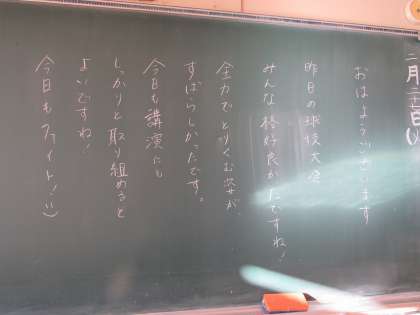 二月二十一日(
おはようございます
昨日の球技大会
みんな格好良かったですね!
全力でとりくむ姿が、
すばらしかったです。
今日も講演にも
しっかりと取り組めると
よいですね!
今日もファイト!:)